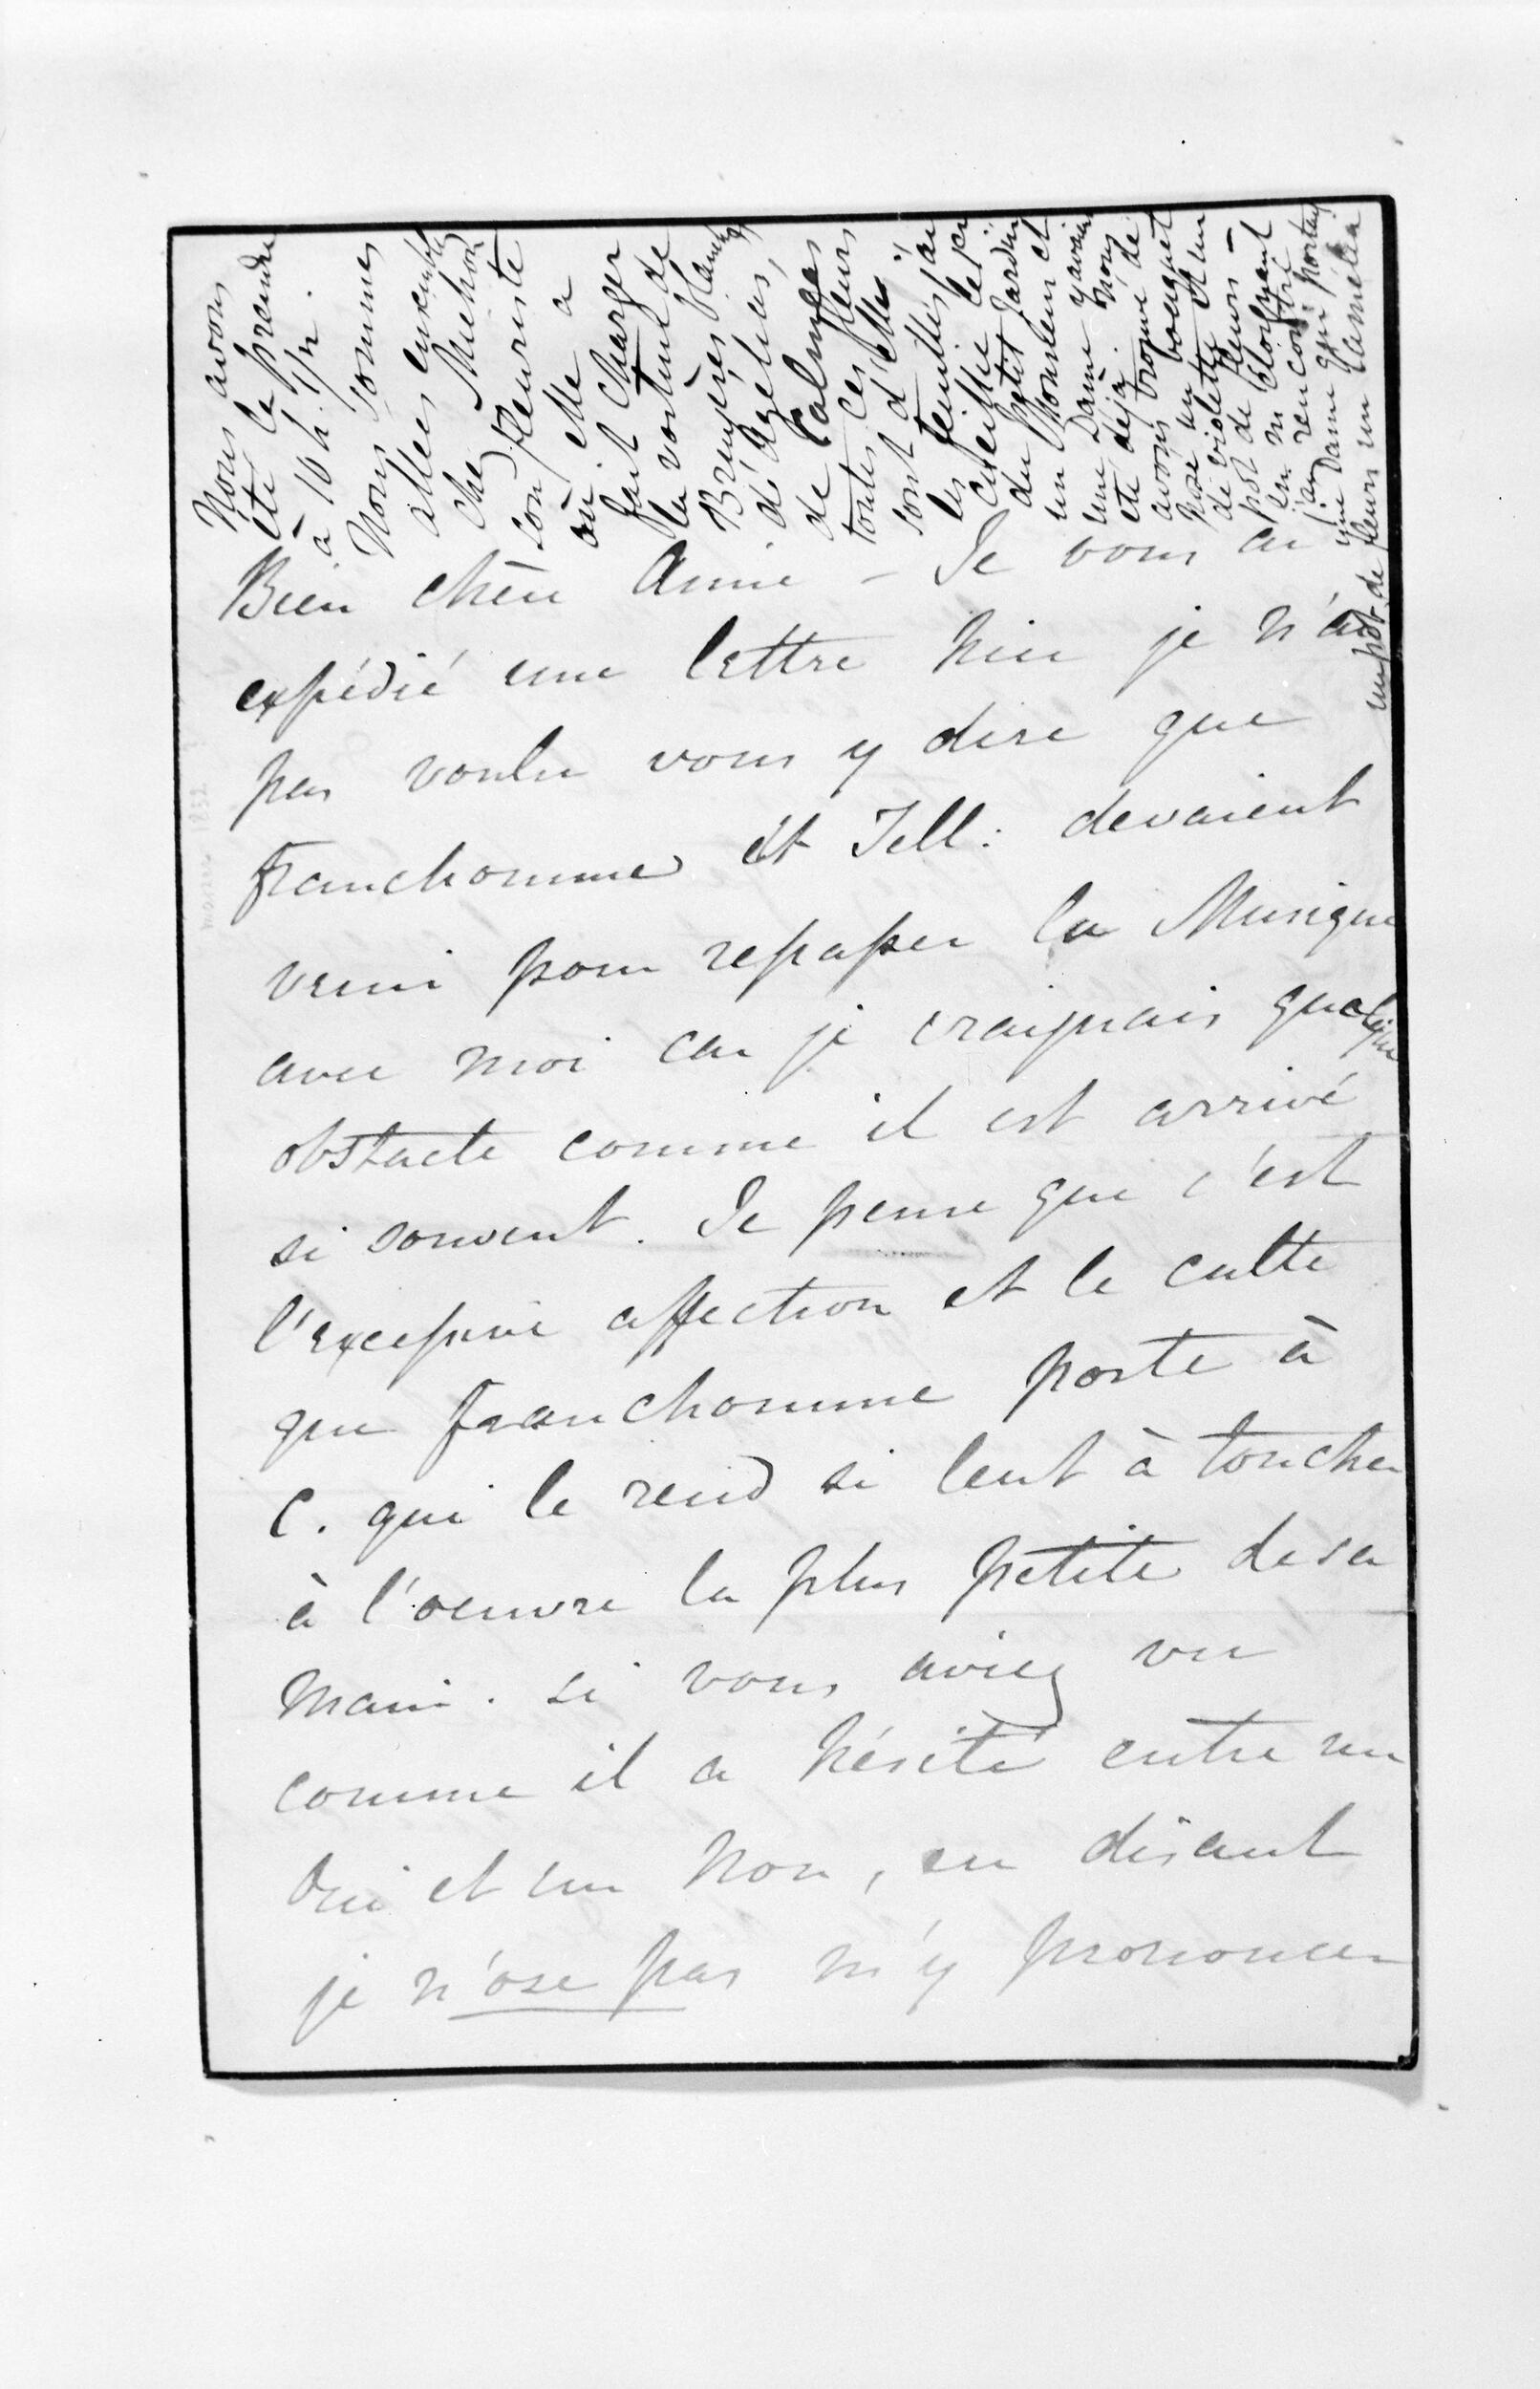 Bien chère Amie – Je vous ai
expédié une lettre hier je n'ai
pas voulu vous y dire que
Franchomme et Tell: devaient
venir pour repasser la Musique
avec moi car je craignais quelque
obstacle comme il est arrivé
si souvent. Je pense que c'est
l'excessive affection et le culte
que Franchomme porte à
C. qui le rend si lent à toucher
à l'oeuvre la plus petite de sa
main. si vous aviez vu
comme il a hésité entre un
Oui et un Non, en disant
je n'ose pas m'y prononcer
Nous avons
été la prendre
à 10 h. 1/2.
Nous sommes
allées ensemble
chez
son fleuriste
où elle a
fait charger
la voiture de
Bruyères blanches
d'Azelias,
de Palmes
toutes ces fleurs
sont d'elle;
les feuilles j'ai
cueillie
du petit Jardin
un Monsieur et
une Dame y avaient
été déjà. Nous
avons trouvé de
posé un bouquet
de violette et un
pot de fleurs –
en m'éloignant
j'ai rencontré
une Dame qui portait
un pot de fleurs un Camélia